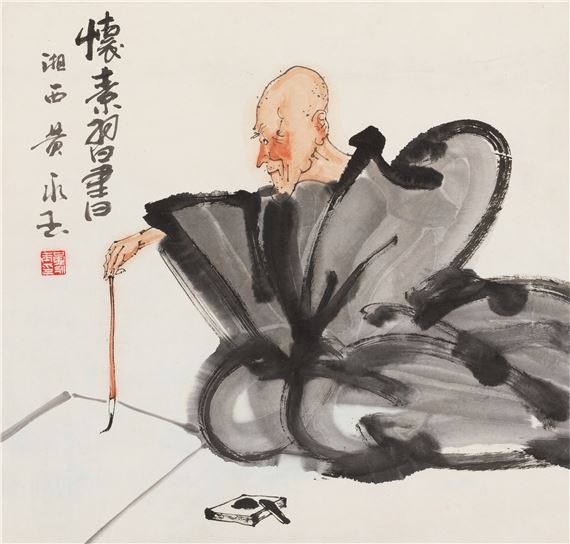 懷素習書
湘西黄永玉